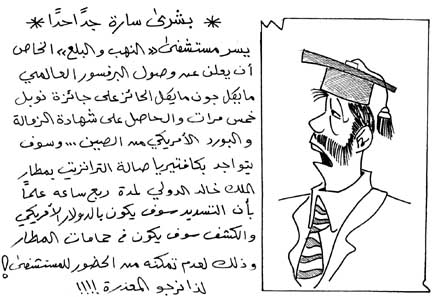 * بشرى سارة جداً جداً *
يسر مستشفى «النهب والبلع» الخاص
أن يعلن عن وصول البرفسور العالمي
مايكل جون مايكل الحائز على جائزة نوبل
خمس مرات والحاصل على شهادة الزمالة
والبورد الأمريكي من الصين ... وسوف
يتواجد بكافتيريا صالة الترانزيت بمطار
الملك خالد الدولي لمدة ربع ساعه علماً
بأن التسديد سوف يكون بالدولار الأمريكي
والكشف سوف يكون في حمامات المطار
وذلك لعدم تمكنه من الحضور للمستشفى؟
لذا نرجو المعذرة !!!!